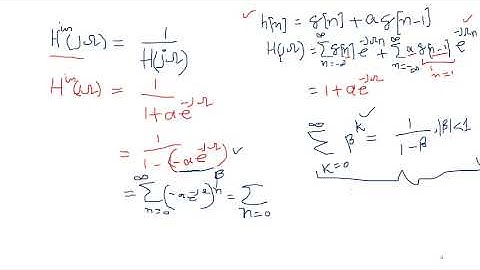 H^in(jΩ) = 1/H(jΩ)
H^in(jΩ) = 1/(1+ae^-jΩ)
= 1/(1-(-ae^-jΩ)) ✓
β
= ∑_{n=0}^{∞} (-ae^-jΩ)^n = ∑_{n=0}
✓ h[n] = δ[n] + aδ[n-1]
H(jΩ) = ∑_{n=-∞}^{∞} δ[n] e^-jΩn + ∑_{n=-∞}^{∞} aδ[n-1] e^-jΩn
n=1
= 1+ae^-jΩ
∑_{K=0}^{∞} β^K = 1/(1-β), |β|<1